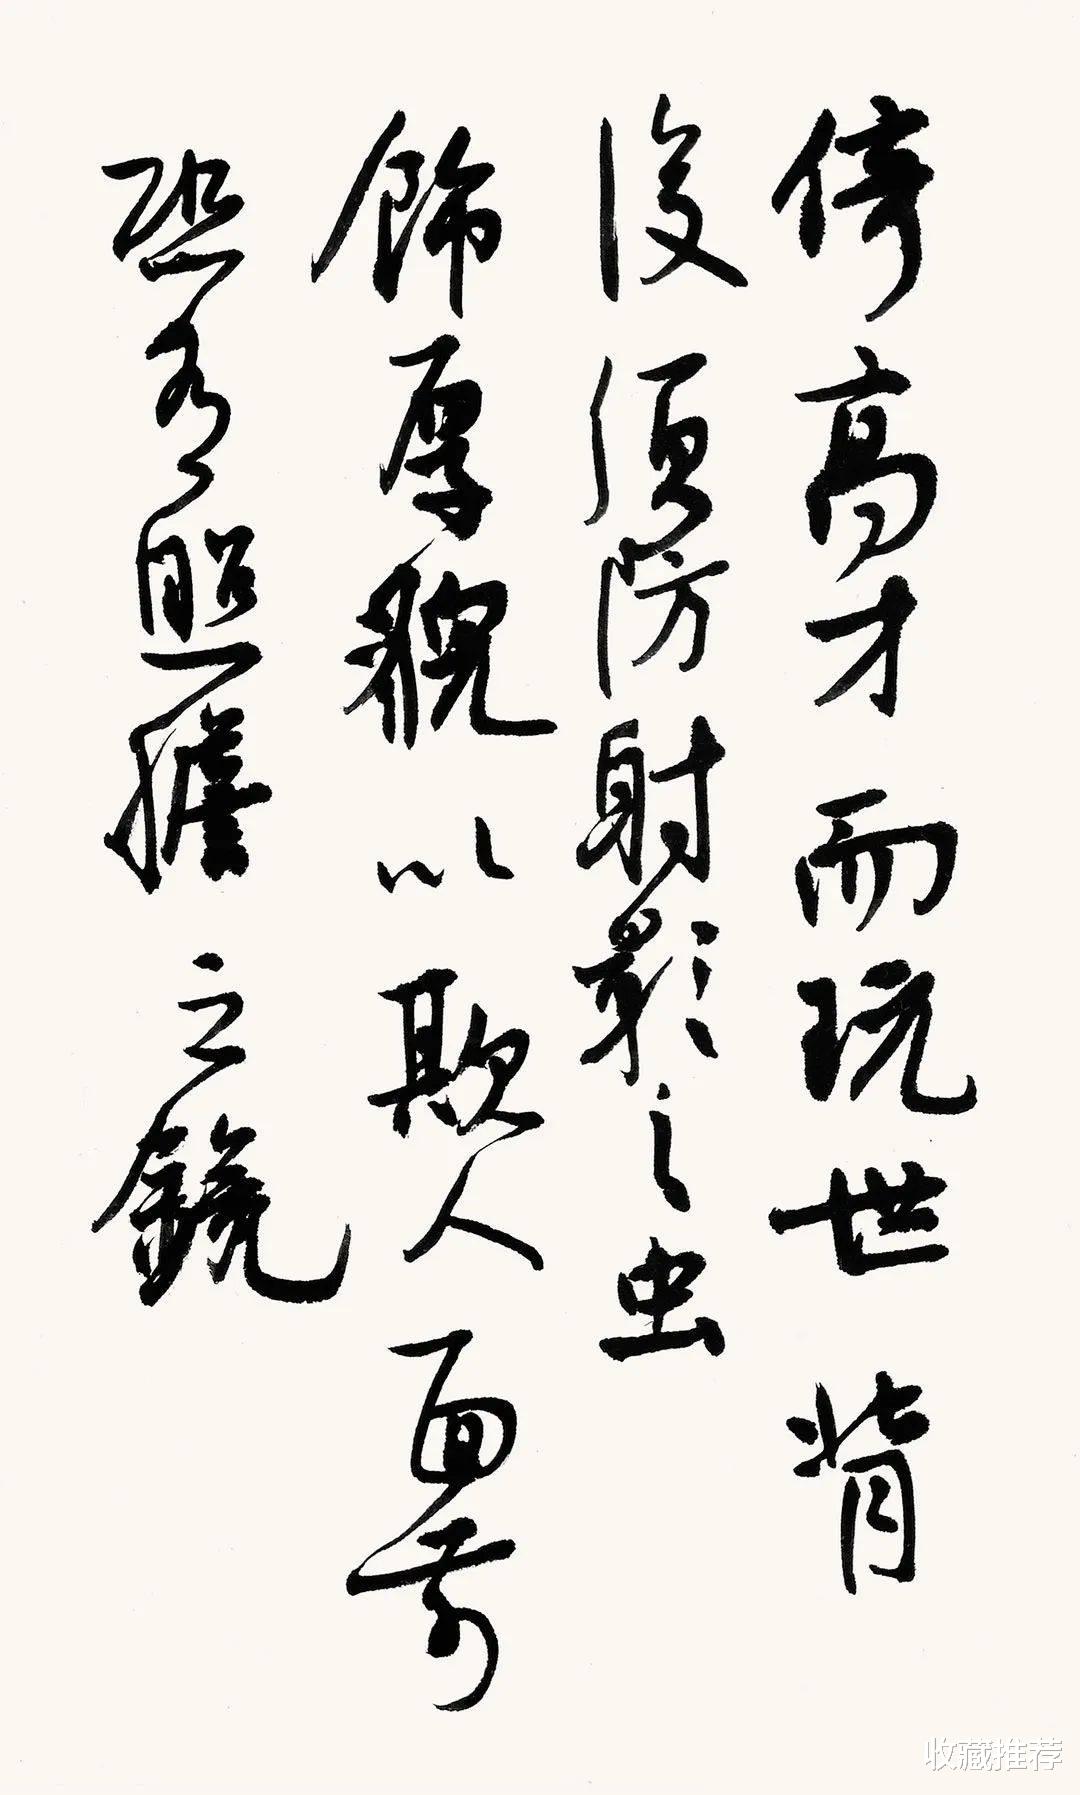 倚高才而玩世背
後須防射影之虫
飾厚貌以欺人面前
恐有照膽之鏡
收藏推荐